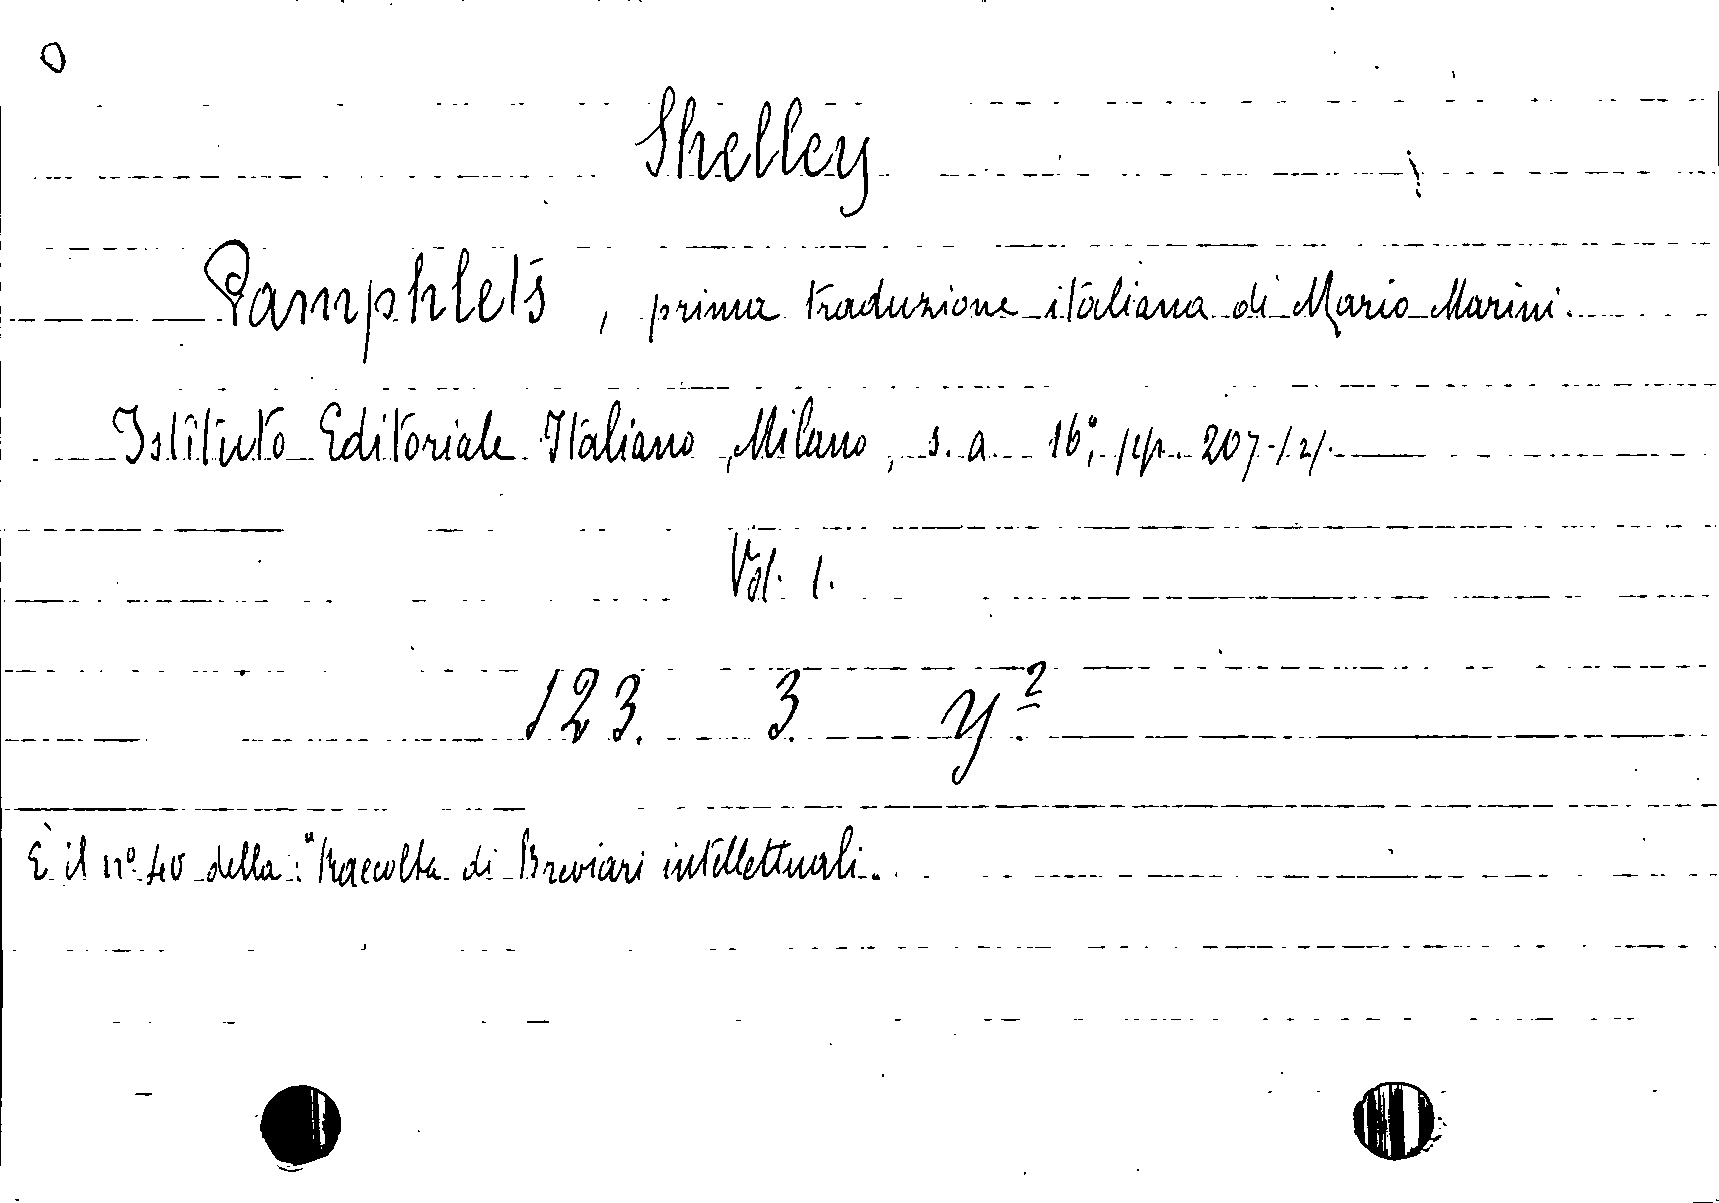 Shelley
Pamphlets, prima traduzione italiana di Mario Marini.
Istituto Editoriale Italiano, Milano, s. a. 16°, pp. 207-(2).
Vol. 1.
123. 3. y²
È il n° 40 della: "Raccolta di Breviari intellettuali.